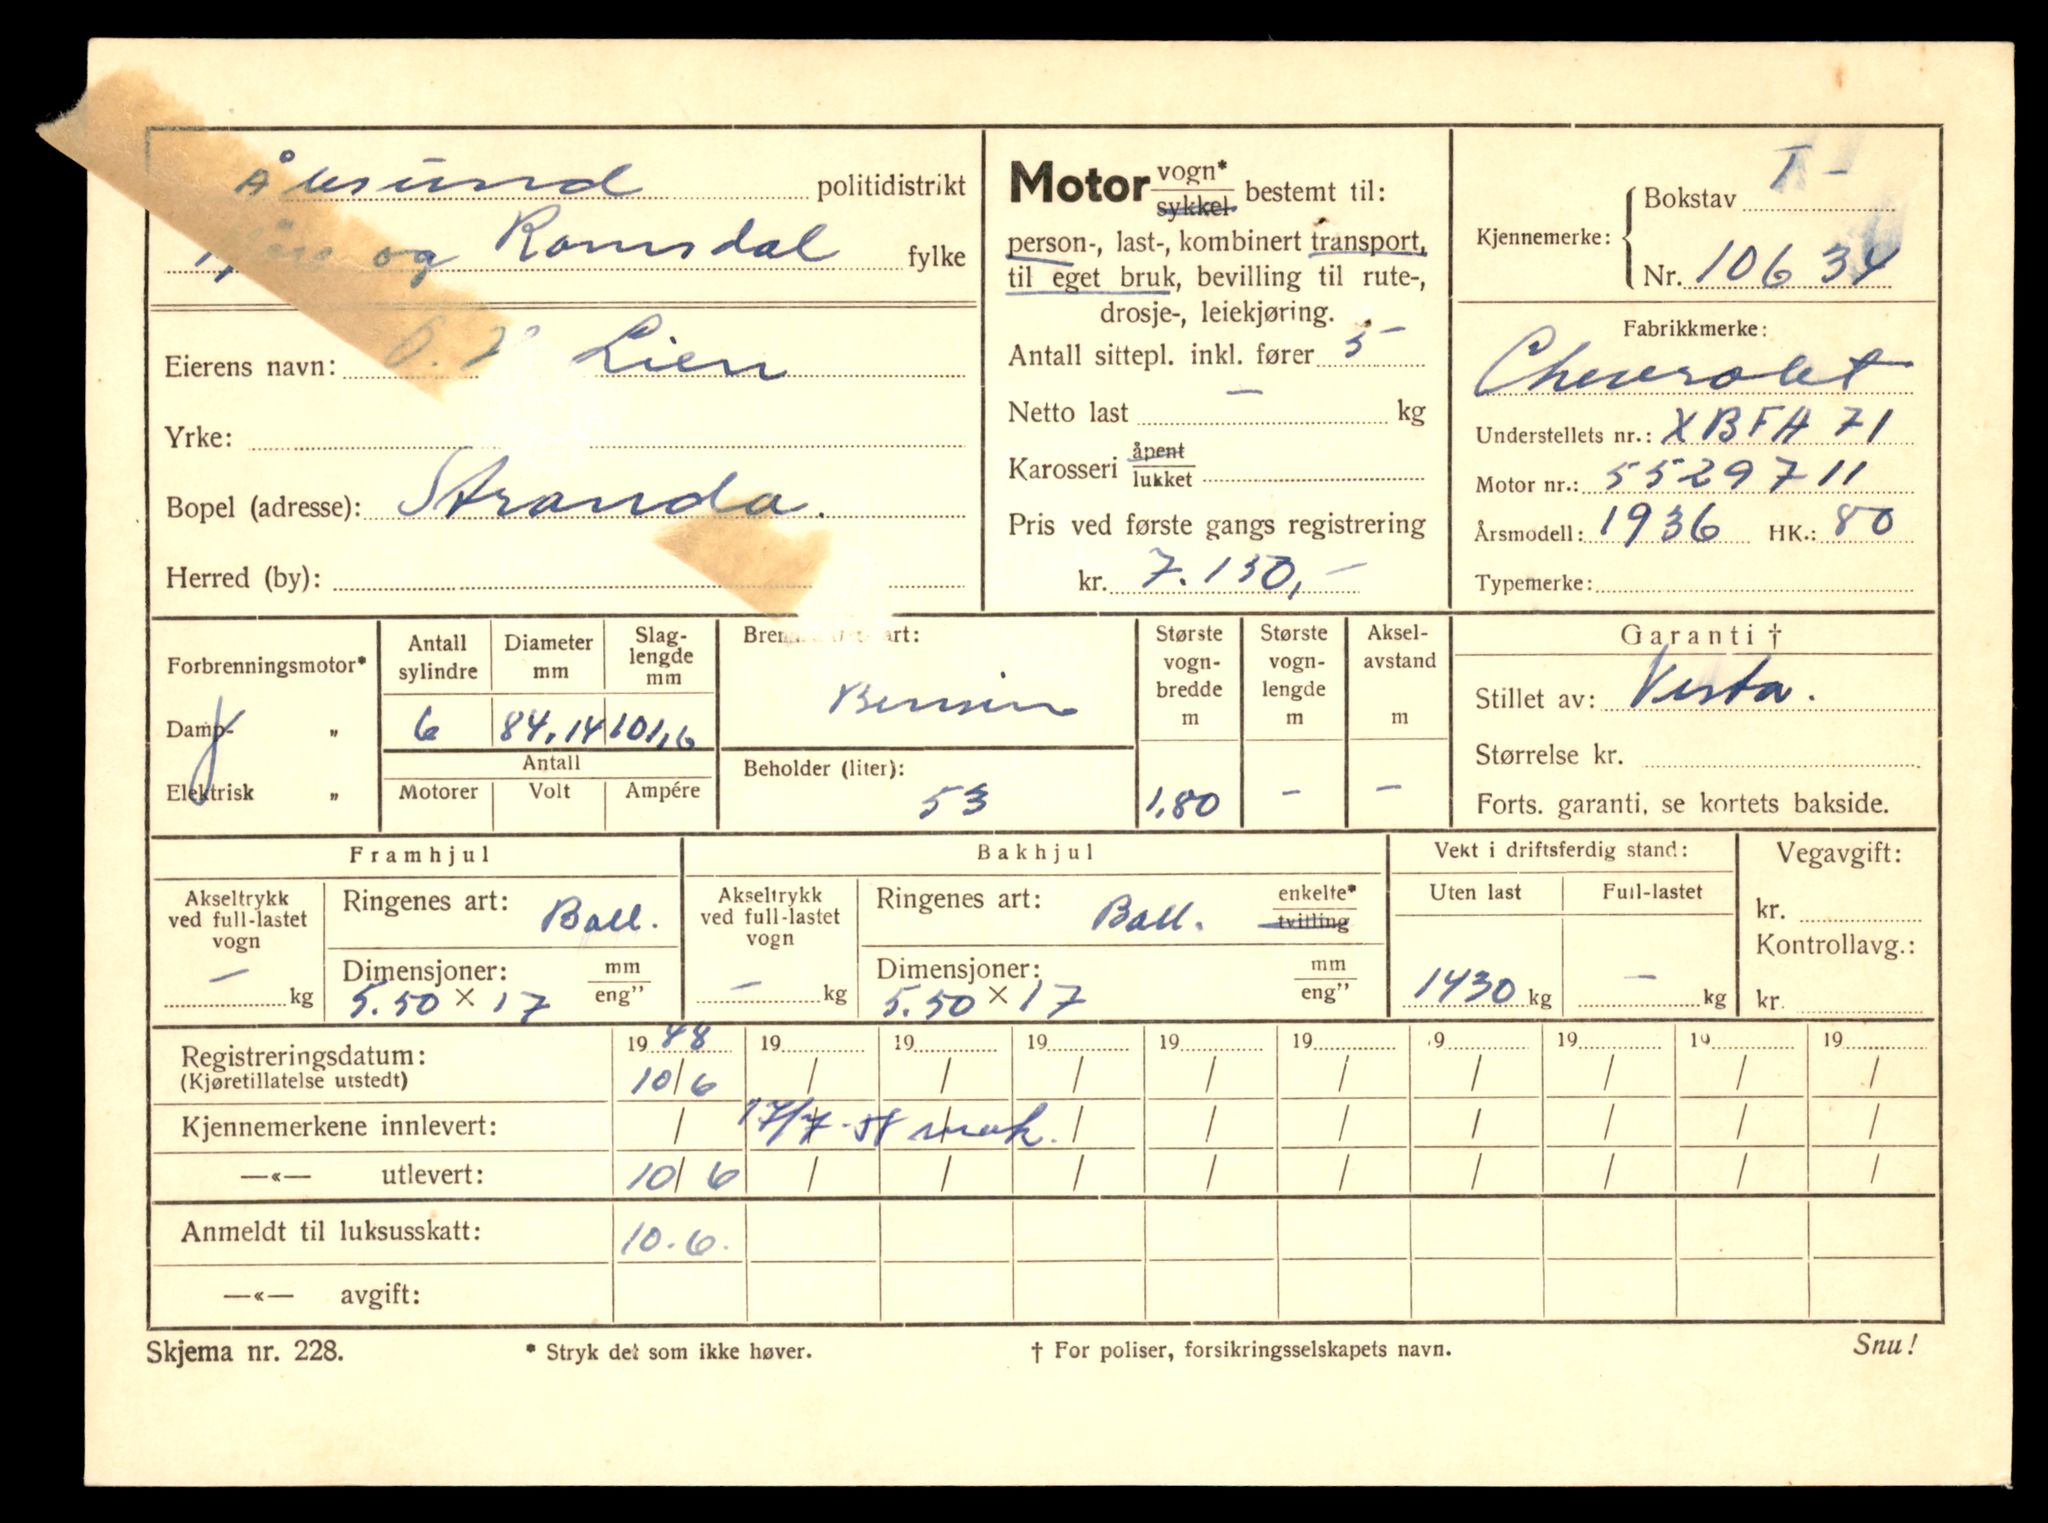 Ålesund politidistrikt
Møre og Romsdal fylke
Eierens navn: O. Lien
Yrke:
Bopel (adresse): Stranda.
Herred (by):
Motor vogn* sykkel bestemt til:
person-, last-, kombinert transport,
til eget bruk, bevilling til rute-,
drosje-, leiekjøring.
Antall sittepl. inkl. fører 5
Netto last — kg
Karosseri åpent lukket
Pris ved første gangs registrering
kr. 7.130,-
Kjennemerke: Bokstav T-
Nr. 10634
Fabrikkmerke:
Chevrolet
Understellets nr.: XBFA 71
Motor nr.: 5529711
Årsmodell: 1936 HK.: 80
Typemerke:
Forbrenningsmotor*
Damp- „
Elektrisk „
Antall sylindre Diameter mm Slag-lengde mm
6 84,14 101,6
Antall
Motorer Volt Ampére
art:
Bensin
Beholder (liter):
53
Største vogn-bredde m
1,80
Største vogn-lengde m
-
Aksel-avstand m
-
Garanti †
Stillet av: Vesta.
Størrelse kr.
Forts. garanti, se kortets bakside.
Framhjul
Akseltrykk ved full-lastet vogn
- kg
Ringenes art: Ball.
Dimensjoner: mm eng”
5.50 × 17
Bakhjul
Akseltrykk ved full-lastet vogn
- kg
Ringenes art: Ball. enkelte* tvilling
Dimensjoner: mm eng”
5.50 × 17
Vekt i driftsferdig stand:
Uten last Full-lastet
1430 kg - kg
Vegavgift:
kr.
Kontrollavg.:
kr.
Registreringsdatum: 19 48 19 19 19 19 19 19 19 19 19
(Kjøretillatelse utstedt) 10/6 / / / / / / / / /
Kjennemerkene innlevert: / 17/7-58 / / / / / / /
—«— utlevert: 10/6 / / / / / / / / /
Anmeldt til luksusskatt: 10.6.
—«— avgift:
Skjema nr. 228. * Stryk det som ikke høver. † For poliser, forsikringsselskapets navn. Snu!